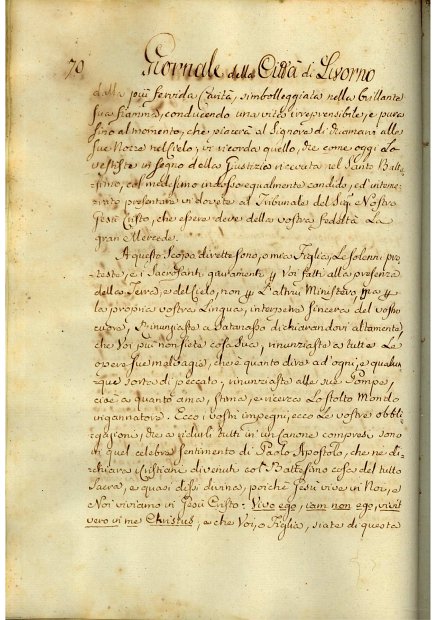 70 Giornale della Città di Livorno
dalla più fervida Carità, simboleggiata nella brillante
sua fiamma, conducendo una vita irreprensibile, e pura
fino al momento, che piacerà al Signore di chiamarvi alle
sue Nozze nel Cielo; vi ricorda quello, che come oggi Lo
vestiste in segno della Giustizia ricevuta nel Santo Batte-
simo, col medesimo indosso egualmente candido, ed intene-
rito presentare vi dovete al Tribunale del Sig.e Nostro
Gesù Cristo, che esser deve della vostra fedeltà La
gran Mercede.
A questo Scopo dirette sono, o mia Figlia, Le solenni pro-
teste, e i Sacrosanti giuramenti p Voi fatti alla presenza
della Terra, e del Cielo, non p L'altrui Ministero, ma p
la propria vostra Lingua, interpetre sincera del vostro
cuore, Rinunziaste a Satanasso dichiarandovi altamente,
che Voi più non siete cosa sua, rinunziaste a tutte Le
opere sue malvagie, che è quanto dire ad ogni, e qualun-
que sorta di peccato; rinunziaste alle sue Pompe,
cioè a quanto ama, stima, e ricerca Lo stolto Mondo
ingannatore. Ecco i vostri impegni, ecco Le vostre obbli-
gazioni, che a ridurli tutti in un Canone compresi sono
in quel celebre sentimento di Paolo Apostolo, che ne di-
chiara i Cristiani divenuti col Battesimo cosa del tutto
Sacra, e quasi dissi divina, poichè Gesù vive in Noi, e
Noi viviamo in Gesù Cristo: Vivo ego, iam non ego, vivit
vero in me Christus; e che Voi, o Figlia, siate di questa